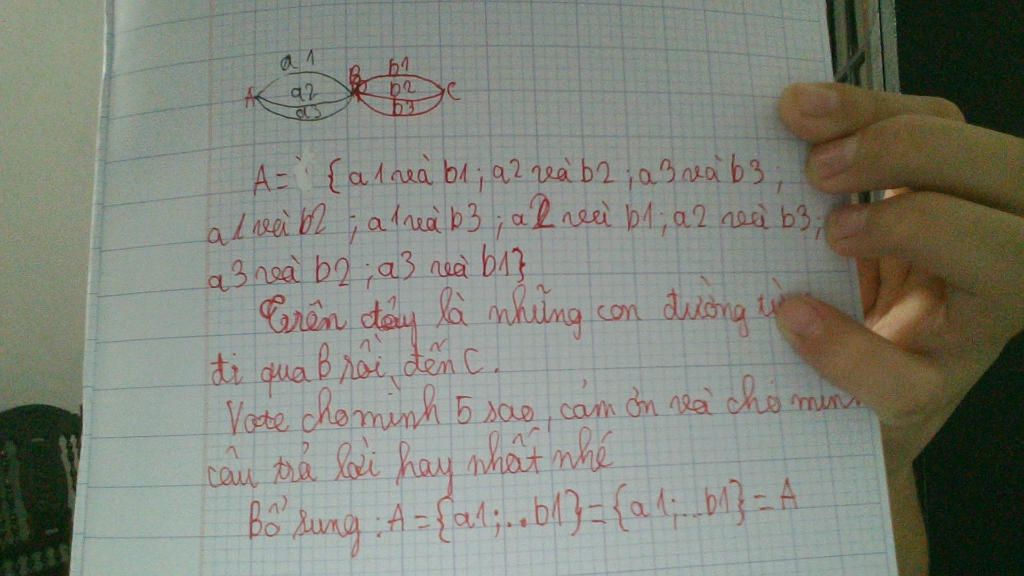 a1 b1
A a2 B b2 C
a3 b3
A = {a1 và b1; a2 và b2; a3 và b3;
a1 và b2; a1 và b3; a2 và b1; a2 và b3;
a3 và b2; a3 và b1}
Trên đây là những con đường từ
đi qua B rồi đến C.
Vote cho mình 5 sao, cảm ơn và cho mình
câu trả lời hay nhất nhé
Bổ sung: A = {a1;..b1} = {a1;..b1} = A